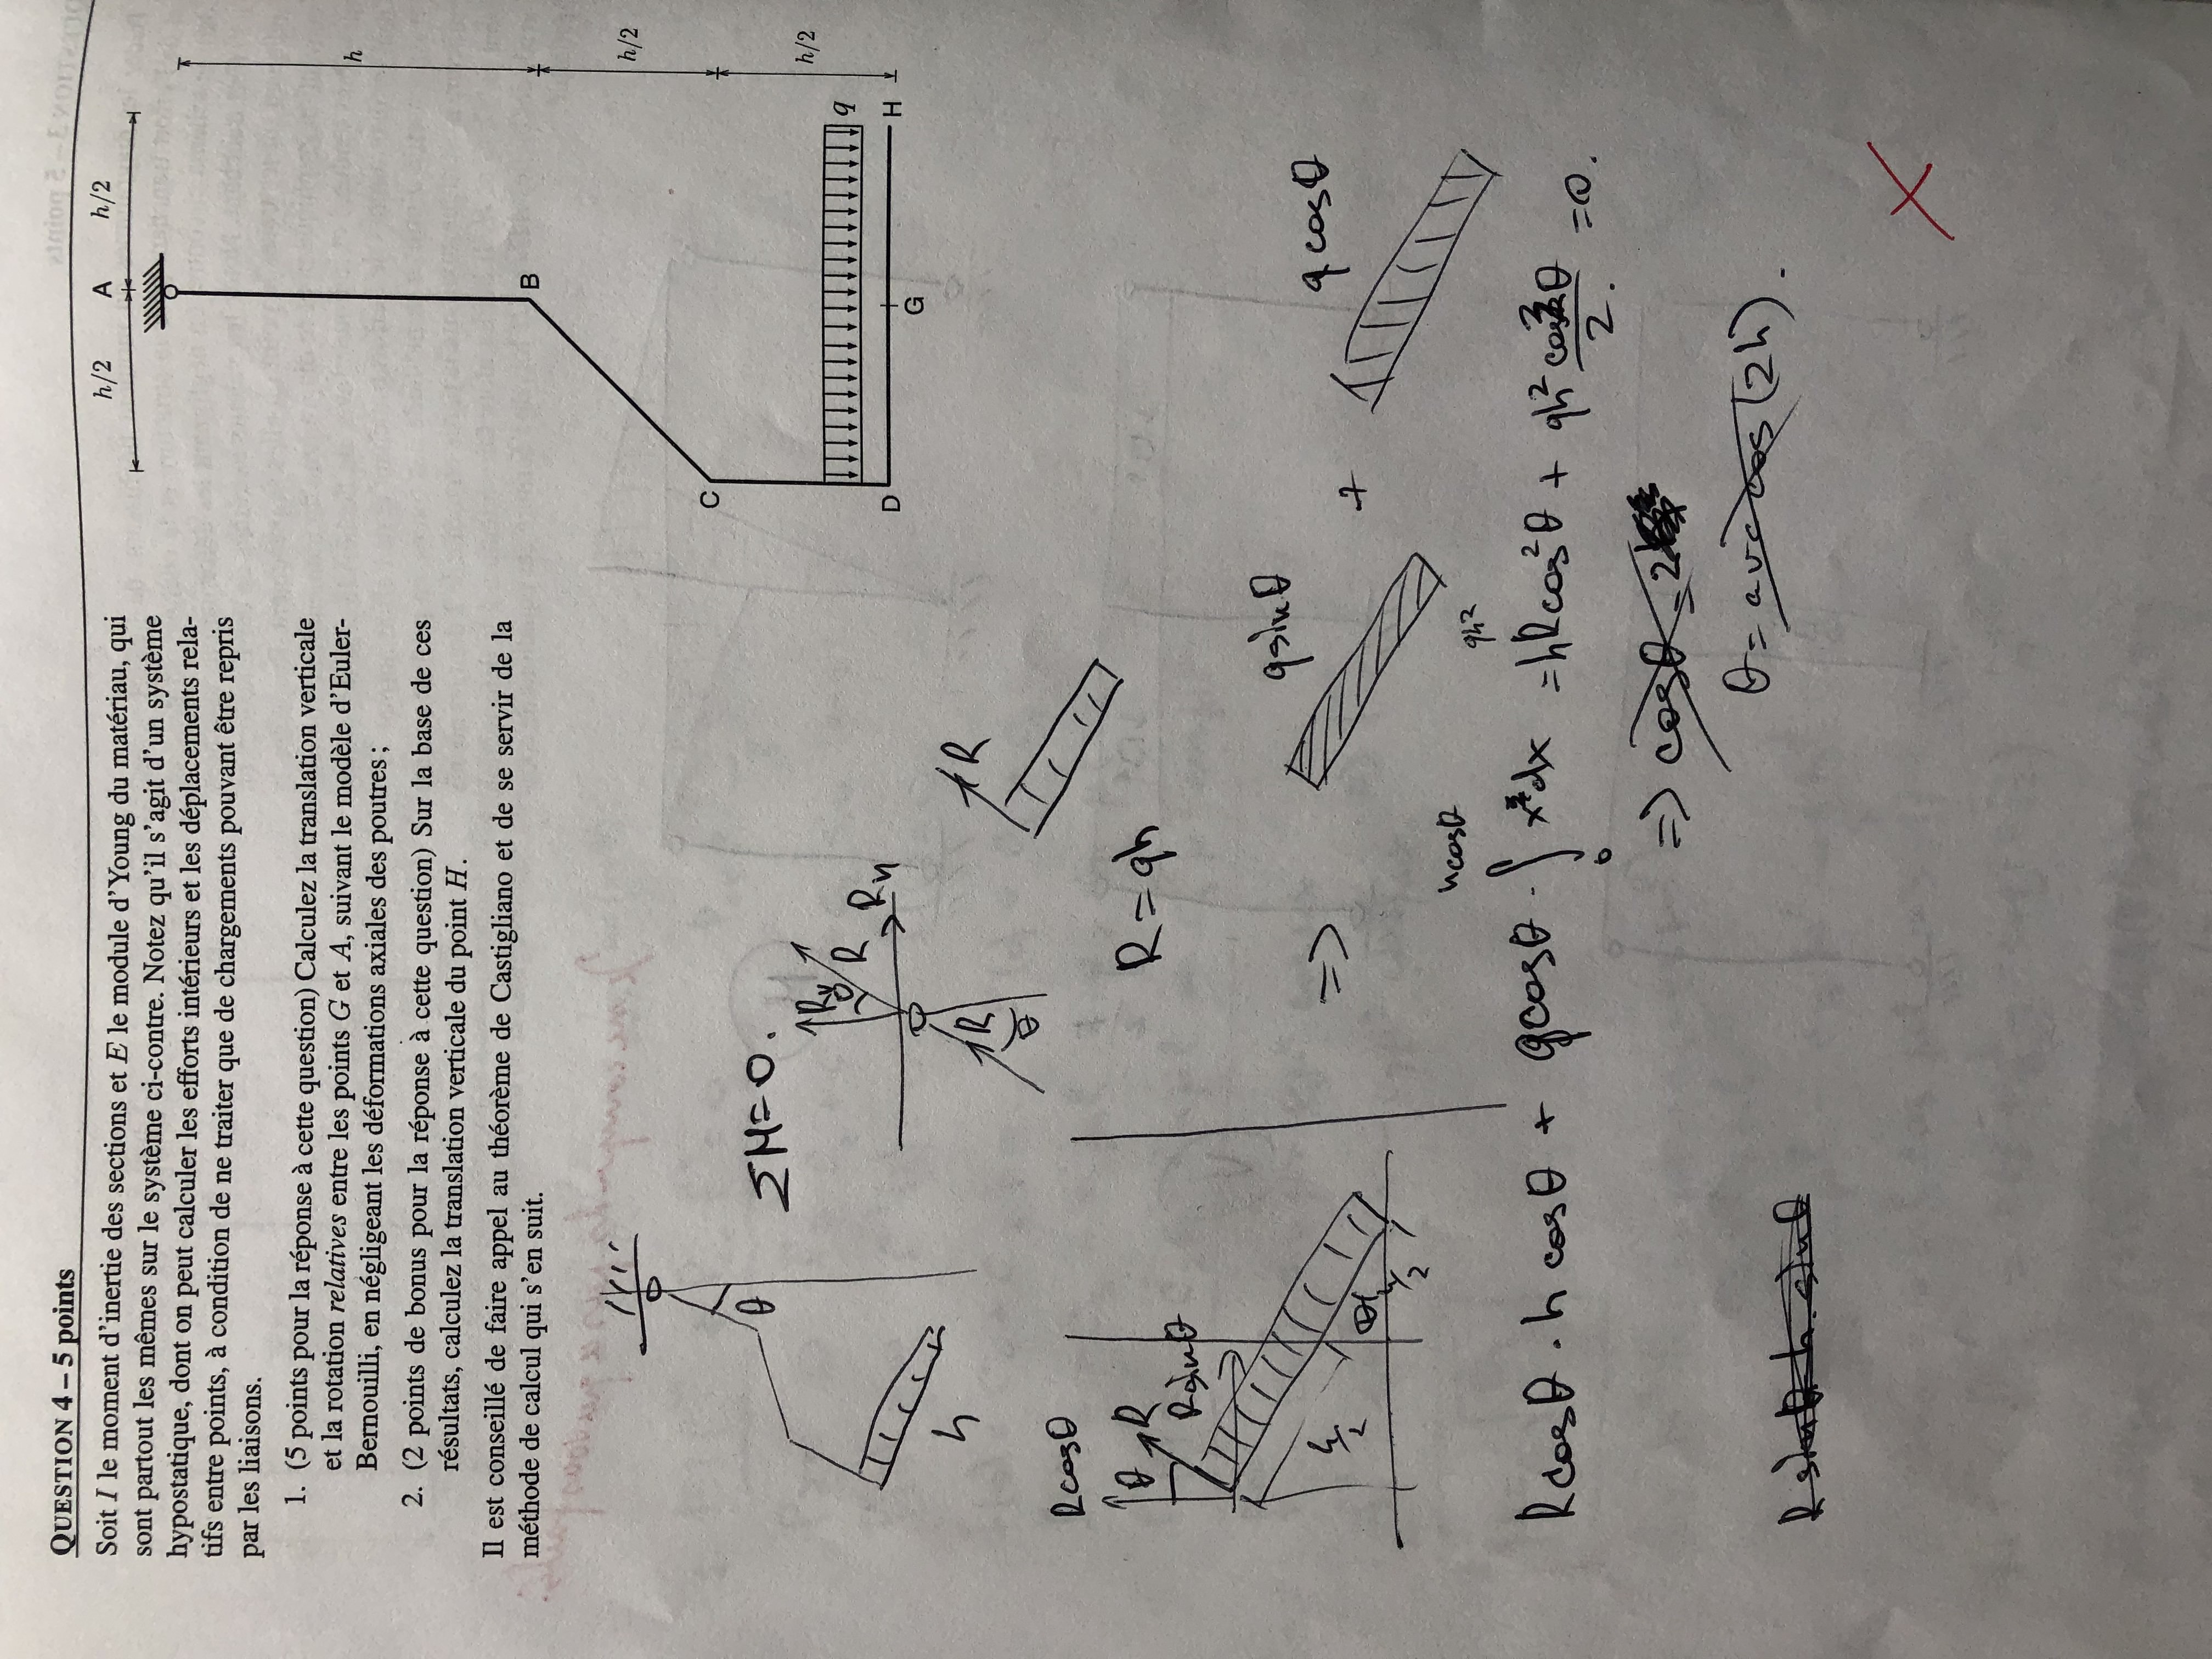 QUESTION 4 – 5 points
Soit I le moment d'inertie des sections et E le module d'Young du matériau, qui
sont partout les mêmes sur le système ci-contre. Notez qu'il s'agit d'un système
hypostatique, dont on peut calculer les efforts intérieurs et les déplacements rela-
tifs entre points, à condition de ne traiter que de chargements pouvant être repris
par les liaisons.
1. (5 points pour la réponse à cette question) Calculez la translation verticale
et la rotation relatives entre les points G et A, suivant le modèle d'Euler-
Bernouilli, en négligeant les déformations axiales des poutres ;
2. (2 points de bonus pour la réponse à cette question) Sur la base de ces
résultats, calculez la translation verticale du point H.
Il est conseillé de faire appel au théorème de Castigliano et de se servir de la
méthode de calcul qui s'en suit.
h/2 A h/2
h
B
h/2
C
h/2
q
D G H
ΣM=0.
θ
h
Rv
R
RH
R
θ
R
Rcosθ
θ
R
Rsinθ
h/2
θ
h/2
R = qh
=>
qsinθ
+
qcosθ
Rcosθ . h cosθ + qcosθ . ∫ dx = hRcos²θ + qh² cos³θ/2 = 0.
hcosθ
0
qh²
=> cosθ = 2
θ = arccos (2h).